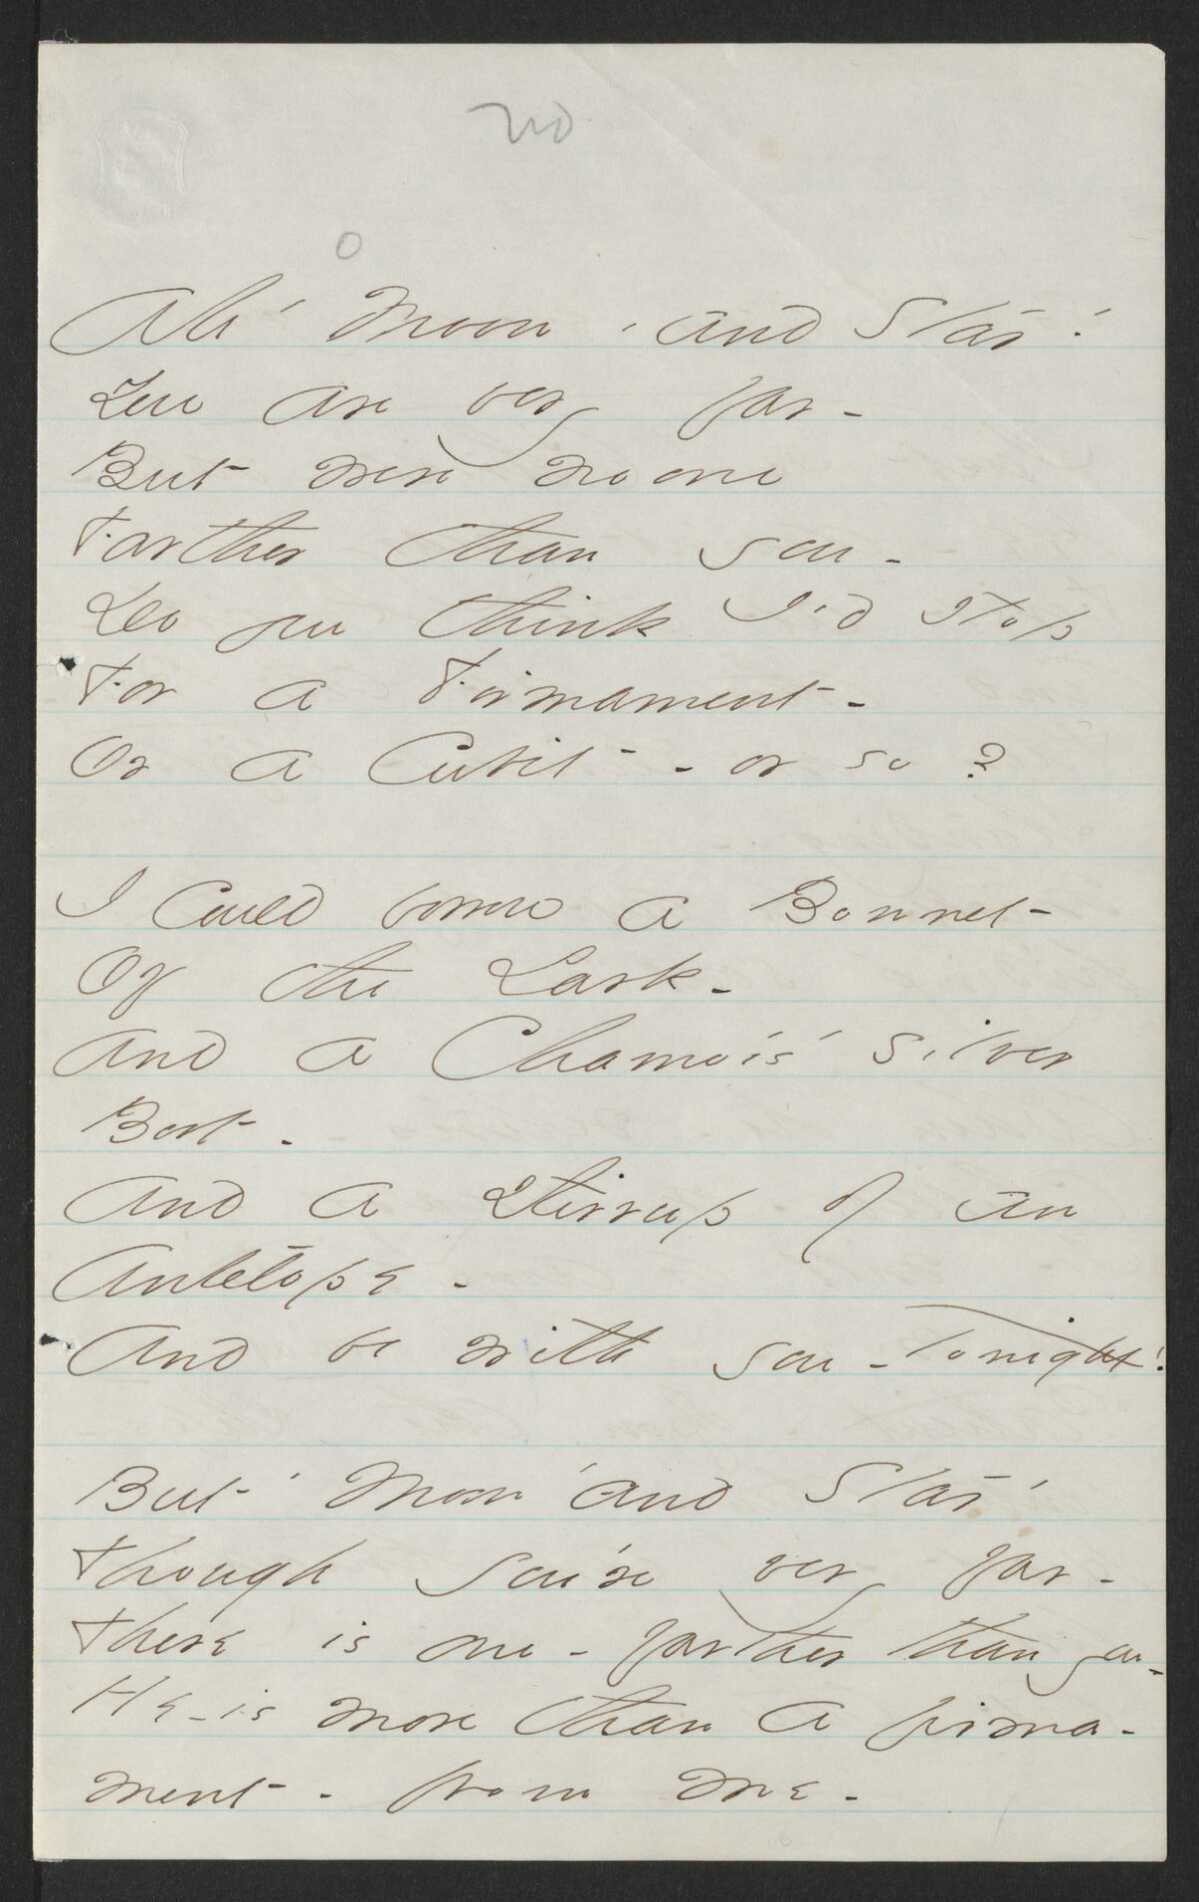 no
o
Ah' Moon - and Star!
You are very far -
But were no one
Farther than you -
Do you think I'd stop
For a Firmament -
Or a Cubit - or so?
I could borrow a Bonnet -
Of the Lark -
And a Chamois' silver
Boot -
And a Stirrup of an
Antelope -
And be with you - Tonight!
But' Moon' and Star'
Though you're very far -
There is one - farther than you -
He - is more than a firma-
ment - from me -